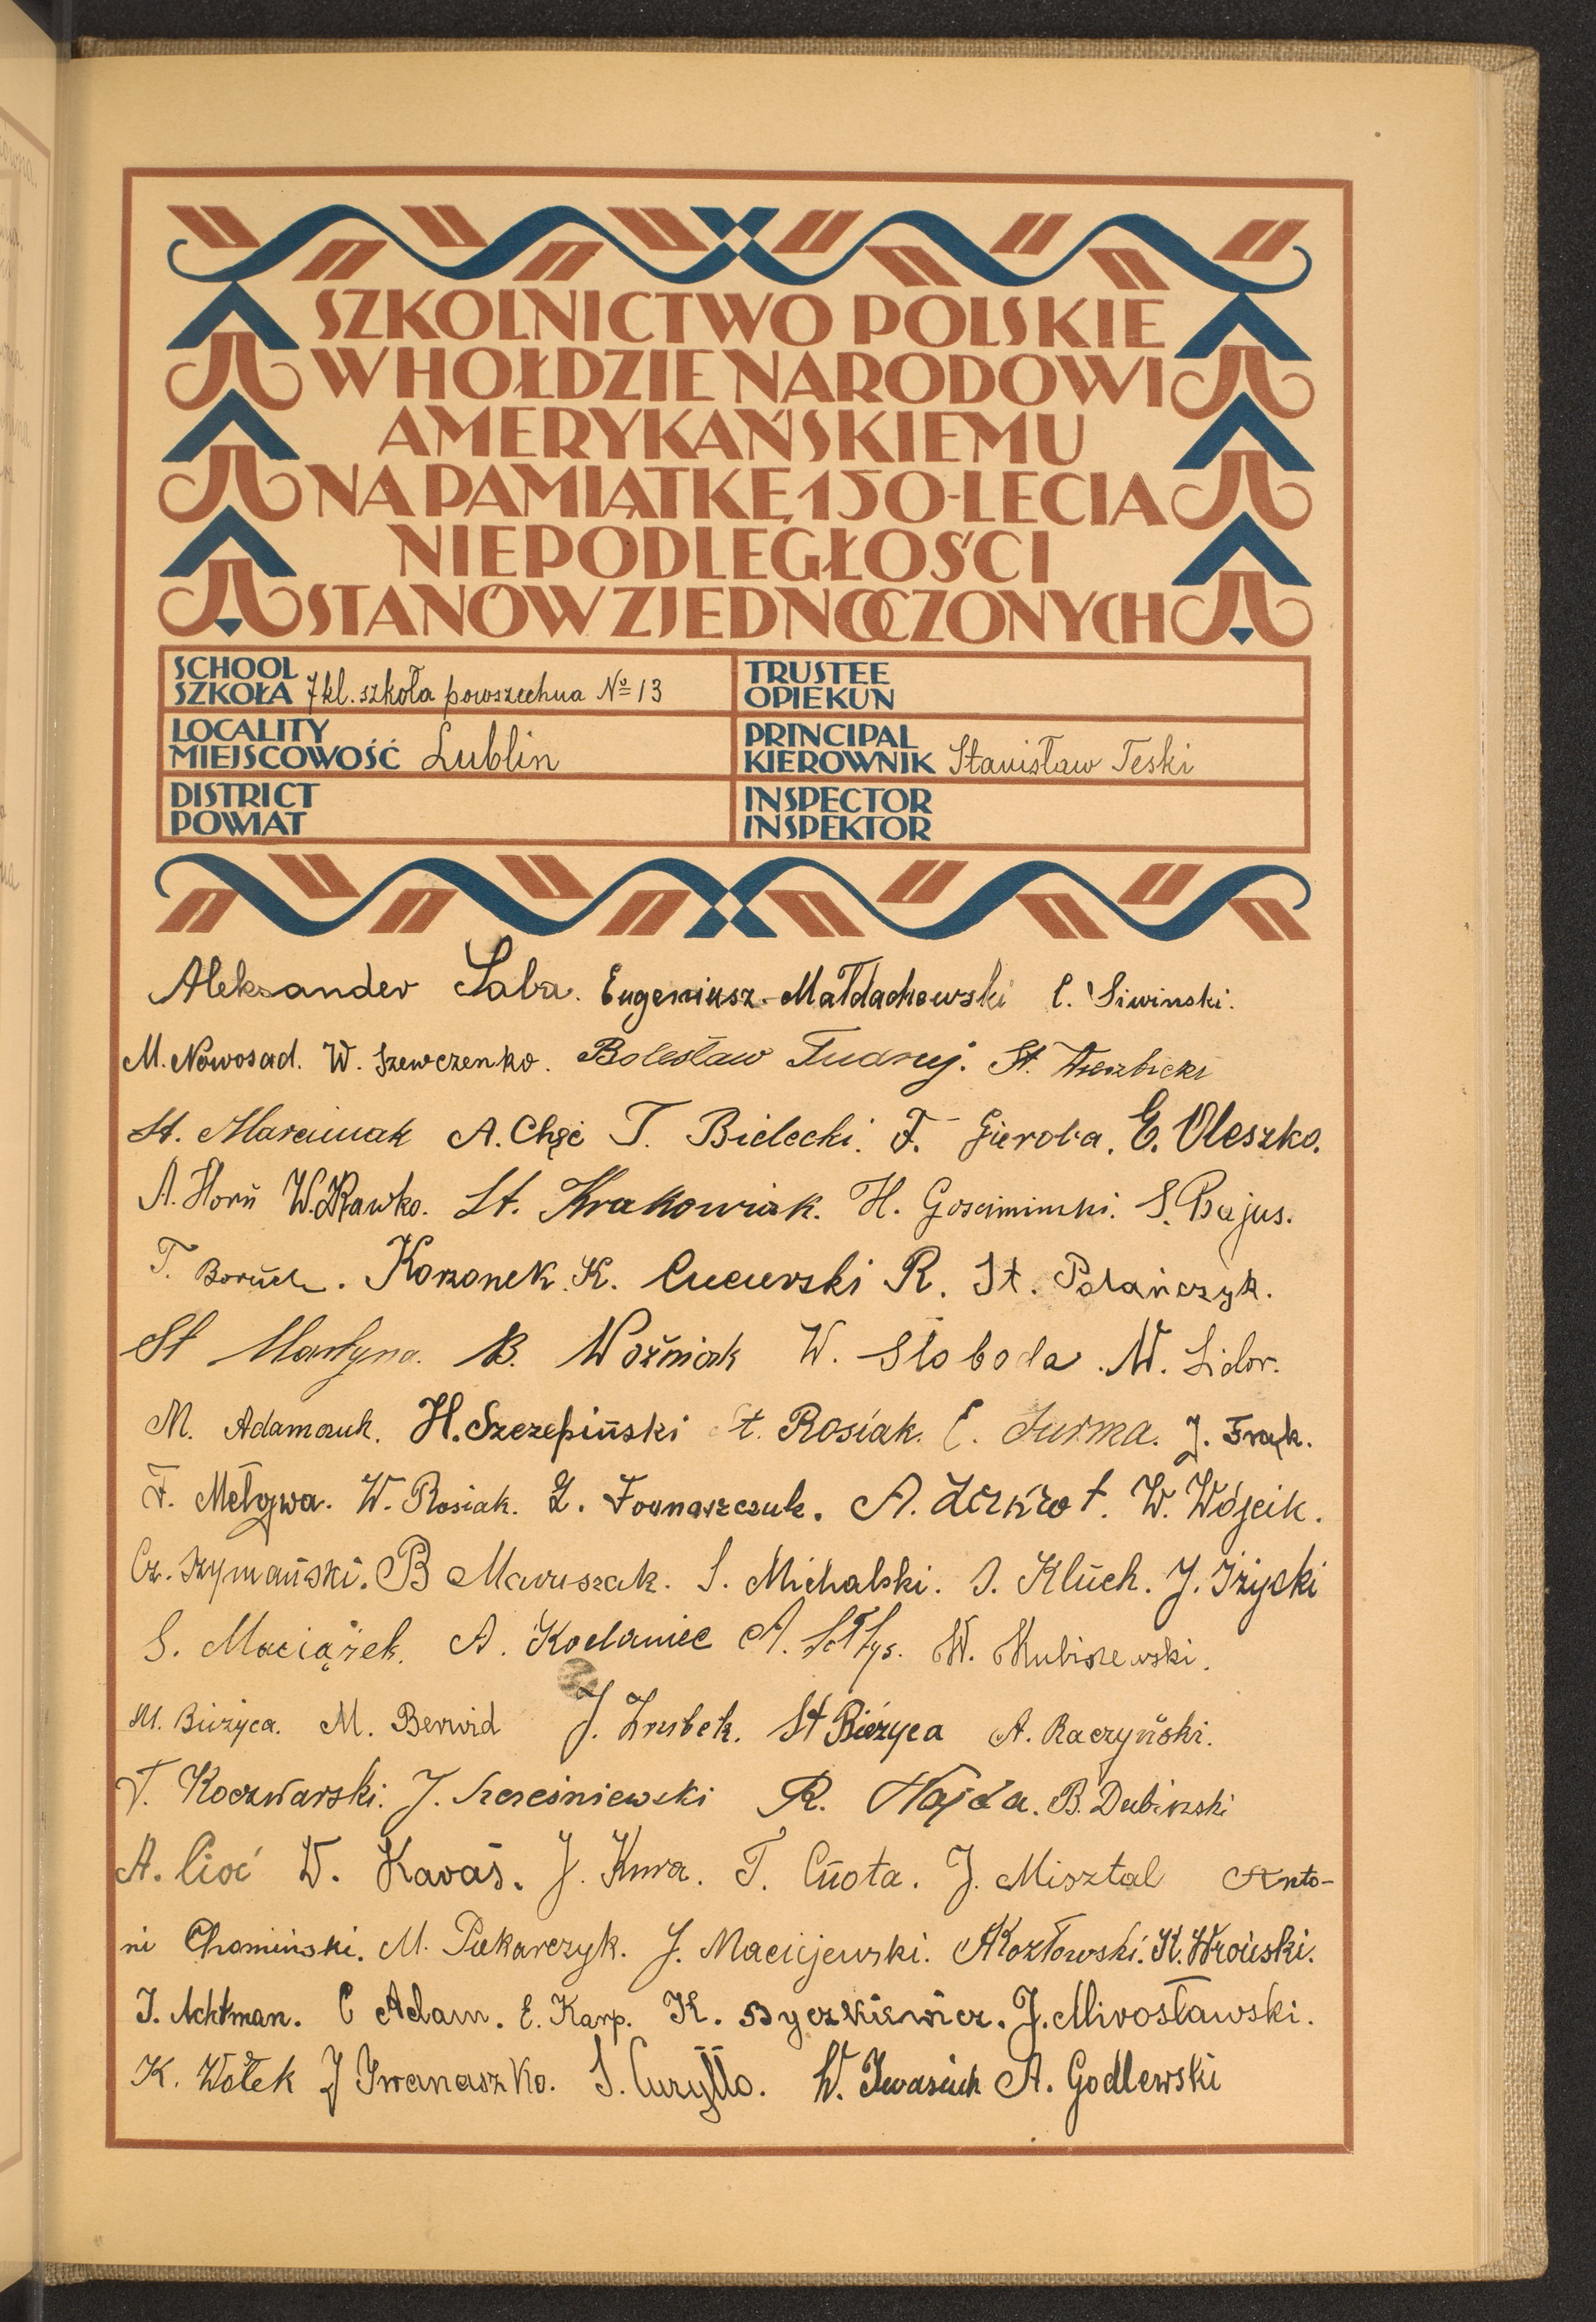 SZKOLNICTWO POLSKIE
W HOŁDZIE NARODOWI
AMERYKAŃSKIEMU
NA PAMIĄTKĘ 150-LECIA
NIEPODLEGŁOŚCI
STANÓW ZJEDNOCZONYCH
SCHOOL
SZKOŁA 7 kl. szkoła powszechna № 13
TRUSTEE
OPIEKUN
LOCALITY
MIEJSCOWOŚĆ Lublin
PRINCIPAL
KIEROWNIK Stanisław Teski
DISTRICT
POWIAT
INSPECTOR
INSPEKTOR
Aleksander Saba. Eugeniusz Małdachowski C. Siwinski.
M. Nowosad. W. Szewczenko. Bolesław St. Wierzbicki
St. Marciniak A. Chęć T. Bielecki. F. Gieroba. E. Oleszko.
A. Horń W. Rawko. St. Krakowiak. H. S. Bajus.
T. Boruch. Korzonek. K. R. St. Polańczyk.
St Martyna. B. Woźniak W. Słoboda. W. Sidor.
M. Adamczuk. H. Szczepiński St. Rosiak. E. Surma. J. Frąk.
F. Mełgwa. W. Rosiak. Z. A. W. Wójcik.
Cz. Szymański. B Maruszak. S. Michalski. S. Kluch. J. Iżycki
S. Maciążek. A. Kodaniec A. W. Kubiszewski.
M. Bieżyca. M. Berwid J. Zrubek. St Bieżyca A. Raczyński.
T. Koczwarski. J. Szcześniewski R. Hajda. B. Dubinski
A. Cioć W. Karaś. J. Kura. T. Cnota. J. Misztal Anto-
ni Chomiński. M. Piekarczyk. J. Maciejewski. A Kozłowski. K. Wroński.
I. Achtman. C Adam. E. Karp. K. Byczkiewicz. J. Mirosławski.
K. Wołek J Iwanaszko. S. Curyłło. W. Iwasiuk A. Godlewski